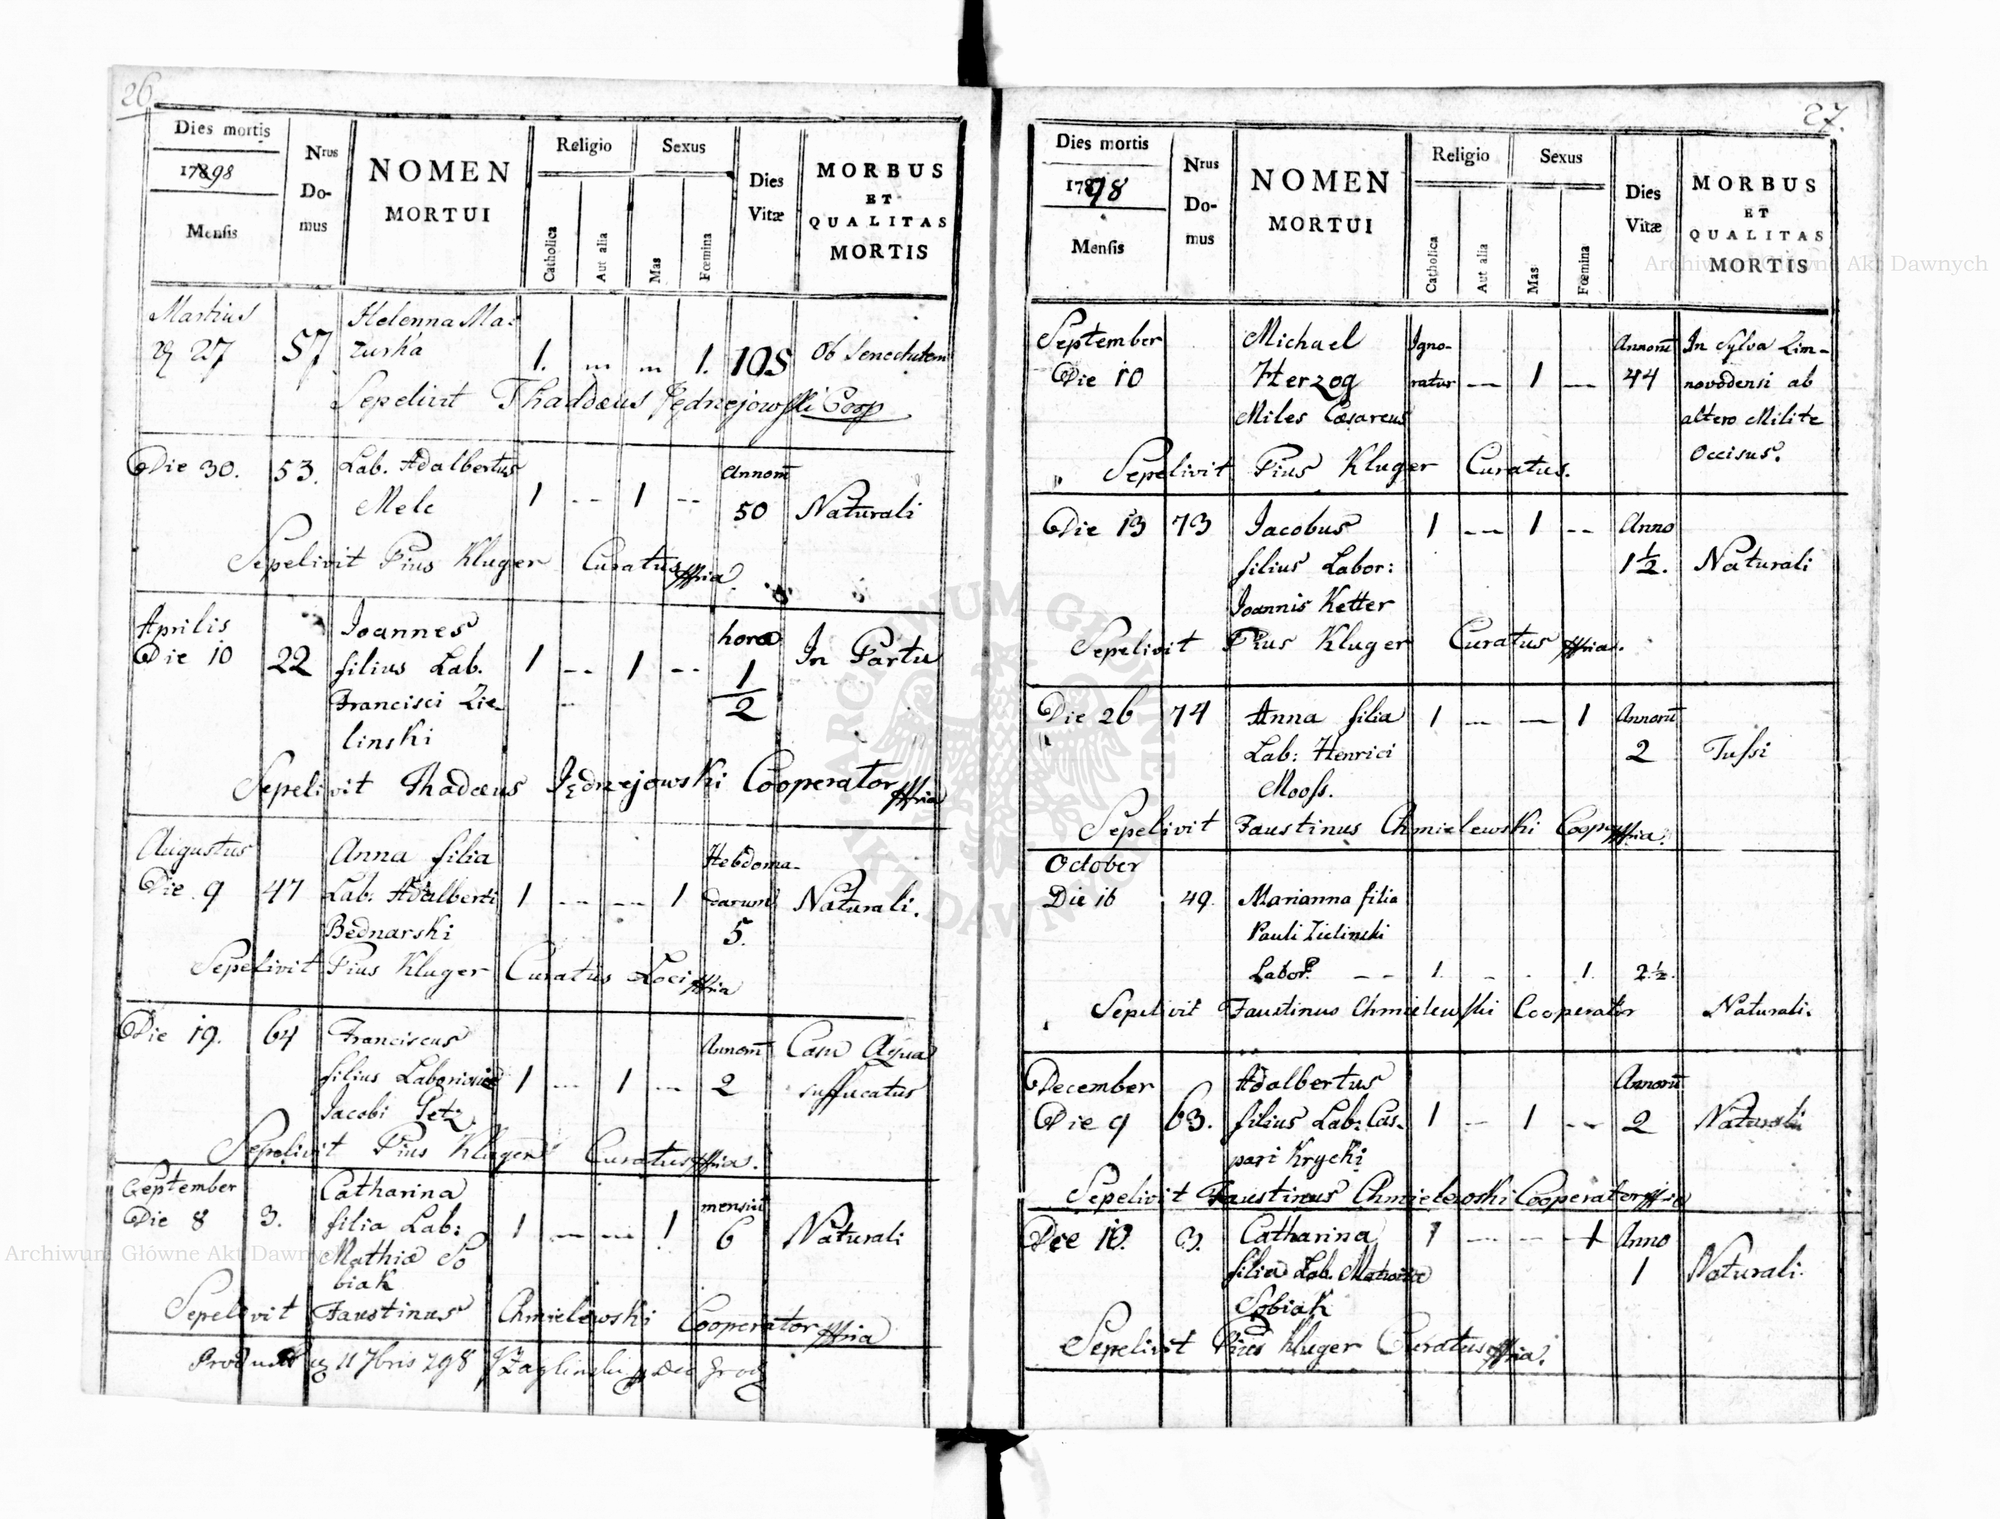 26
Dies mortis
1798
Mensis
Nrus
Do-
mus
NOMEN
MORTUI
Religio
Catholica
Aut alia
Sexus
Mas
Fœmina
Dies
Vitæ
MORBUS
ET
QUALITAS
MORTIS
Martius
27
57
Helenna Ma:
zurka
1.
1.
108
Ob Senectutem
Sepelivit Thaddæus Jędrzejowski Coop
Die 30.
53.
Lab. Adalbertus
Mele
1 -- 1 --
Annorũ
50
Naturali
Sepelivit Pius Kluger Curatus mpria
Aprilis
Die 10
22
Joannes
filius Lab.
Francisci Zie-
linski
1 -- 1 --
horæ
1/2
In Partu
Sepelivit Thadæus Jędrzejowski Cooperator mpria
Augustus
Die 9
47
Anna filia
Lab. Adalberti
Bednarski
1 -- -- 1
Hebdoma-
darum
5.
Naturali.
Sepelivit Pius Kluger Curatus Loci mpria
Die 19.
64
Franciscus
filius Laboriosi
Jacobi Petz
1 -- 1 --
Annorũ
2
Casu Aqua
suffucatus
Sepelivit Pius Kluger Curatus mpria.
September
Die 8
3.
Catharina
filia Lab:
Mathiæ So
biak
1 -- -- 1
mensiũ
6
Naturali
Sepelivit Faustinus Chmielewski Cooperator mpria
11 7bris 798
27.
Dies mortis
1798
Mensis
Nrus
Do-
mus
NOMEN
MORTUI
Religio
Catholica
Aut alia
Sexus
Mas
Fœmina
Dies
Vitæ
MORBUS
ET
QUALITAS
MORTIS
September
Die 10
Michael
Herzog
Miles Cæsareus
Igno-
ratur -- 1 --
Annorũ
44
In Sylva Lim-
novodensi ab
altero Milite
Occisus.
Sepelivit Pius Kluger Curatus.
Die 13
73
Jacobus
filius Labor:
Joannis Ketter
1 -- 1 --
Anno
1½.
Naturali
Sepelivit Pius Kluger Curatus mpria.
Die 26
74
Anna filia
Lab: Henrici
Mooſs.
1 -- -- 1
Annorũ
2
Tuſsi
Sepelivit Faustinus Chmielewski Coop mpria.
October
Die 16
49.
Marianna filia
Pauli Zielinski
Labor. --
1. - - 1.
2½.
Naturali.
Sepelivit Faustinus Chmielewſki Cooperator
December
Die 9
63.
Adalbertus
filius Lab: Cas-
pari Krycki
1 -- 1 --
Annorũ
2
Naturali
Sepelivit Faustinus Chmielewski Cooperator mpria
Die 10.
3.
Catharina
filia Lab. Mathiæ
Sobiak
1 -- -- 1
Anno
1
Naturali.
Sepelivit Pius Kluger Curatus mpria.
ARCHIWUM GŁÓWNE AKT DAWNYCH
Archiwum Główne Akt Dawnych
Archiwum Główne Akt Dawnych